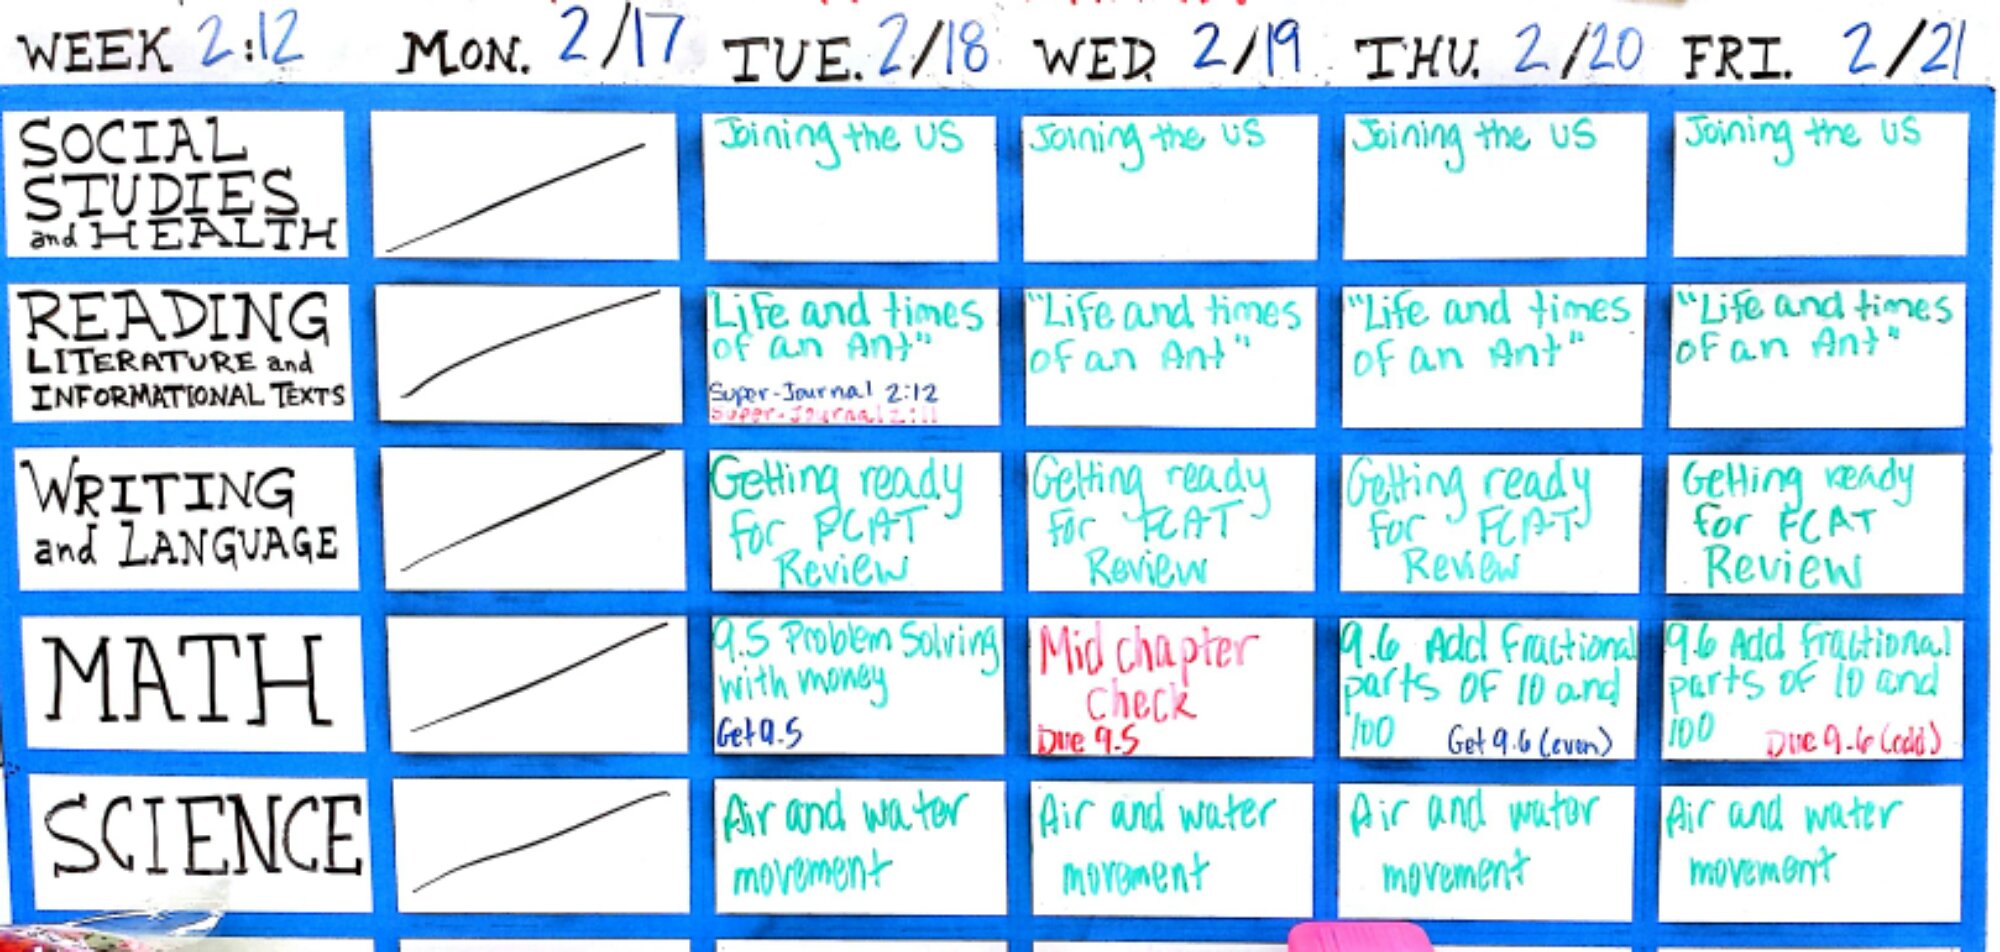 WEEK 2:12
MON. 2/17
TUE. 2/18
WED. 2/19
THU. 2/20
FRI. 2/21
SOCIAL
STUDIES
and HEALTH
Joining the US
Joining the US
Joining the US
Joining the US
READING
LITERATURE and
INFORMATIONAL TEXTS
"Life and times
of an Ant"
Super-Journal 2:12
Super-Journal 2:11
"Life and times
of an Ant"
"Life and times
of an Ant"
"Life and times
of an Ant"
WRITING
and LANGUAGE
Getting ready
for FCAT
Review
Getting ready
for FCAT
Review
Getting ready
for FCAT
Review
Getting ready
for FCAT
Review
MATH
9.5 Problem Solving
with money
Get 9.5
Mid chapter
check
Due 9.5
9.6 Add fractional
parts of 10 and
100 Get 9.6 (even)
9.6 Add fractional
parts of 10 and
100 Due 9.6 (odd)
SCIENCE
Air and water
movement
Air and water
movement
Air and water
movement
Air and water
movement